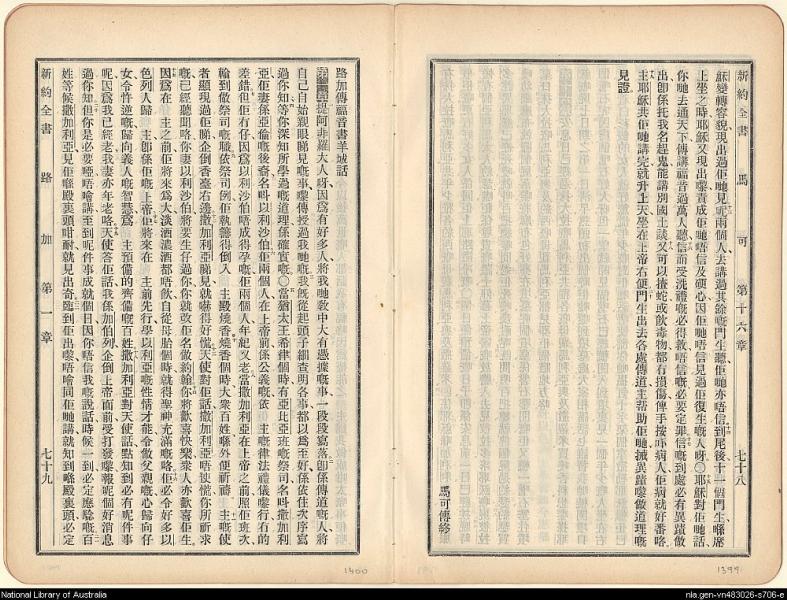 新約全書 馬可 第十六章 七十八
穌變轉容貌現出過佢哋見呢兩個人去講過其餘嘅門生聽佢哋亦唔信到尾後十一個門生喺席
上坐之時耶穌又現出嚟責成佢哋唔信及硬心因佢哋唔信見過佢復生嘅人呀〇耶穌對佢哋話
你哋去通天下傳講福音過萬人聽信而受洗禮嘅必得救唔信嘅必要定罪信嘅到處必有異蹟做
出卽係托我名起鬼能講別國土談又可以揸蛇或飲毒物都冇損傷俾手按吓病人佢病就好番咯
主耶穌共佢哋講完就升上天坐在上帝右便門生出去各處傳道主幫助佢哋搣異蹟嚟做道理嘅
見證
馬可傳終
1399
路加傳福音書羊城話
提阿非羅大人呀因爲有好多人將我哋敎中大有憑據嘅事一段段寫落卽係傳道嘅人將
自己自始親眼睇見嘅事嚟傳授過我哋嘅我旣從起頭子細查明各事都以爲至好係依住次序寫
過你知等你深知所學過嘅道理係確實嘅〇當猶太王希律個時有亞比亞班嘅祭司名叫撒加利
亞佢妻係亞倫嘅後裔名叫以利沙伯佢兩個人在上帝前係公義嘅依主嘅律法禮儀嚟行冇的
差錯但佢冇仔因爲以利沙伯唔成得孕嘅佢兩個人年紀又老當撒加利亞在上帝之前照佢班次
輪到做祭司嘅職依祭司例佢就籤得倒入主殿燒香燒香個時大衆百姓喺外便祈禱主嘅使
者顯現過佢睇企倒香臺右邊撒加利亞睇見就嚇得好慌天使對佢話撒加利亞唔該慌你所祈求
嘅已經聽聞咯你妻以利沙伯將要生仔過你你就改佢名做約翰你將歡喜快樂衆人亦歡喜佢生
因爲在主之前佢將來爲大淡酒濃酒都唔飲自從母胎個時就得聖神充滿嘅咯佢必令好多以
色列人歸主卽係佢嘅上帝佢將來在主前先行學以利亞嘅性情才能令做父親嘅心歸向仔
女令忤逆嘅歸向義人嘅智慧爲主預備的齊備嘅百姓撒加利亞對天使話點知到必有呢件事
呢因爲我已經老我妻亦年老咯天使答佢話我係加伯列企倒上帝面前受打發嚟報呢個好消息
過你知但你是必要啞唔噲講至到呢件事成就個日因你唔信我嘅說話時候一到必定應驗嘅百
姓等候撒加利亞見佢喺殿裏頭咁耐就見出奇臨到佢出嚟唔噲同佢哋講就知到喺殿裏頭必定
新約全書 路加 第一章 七十九
1400
National Library of Australia
nla.gen-vn483026-s706-e